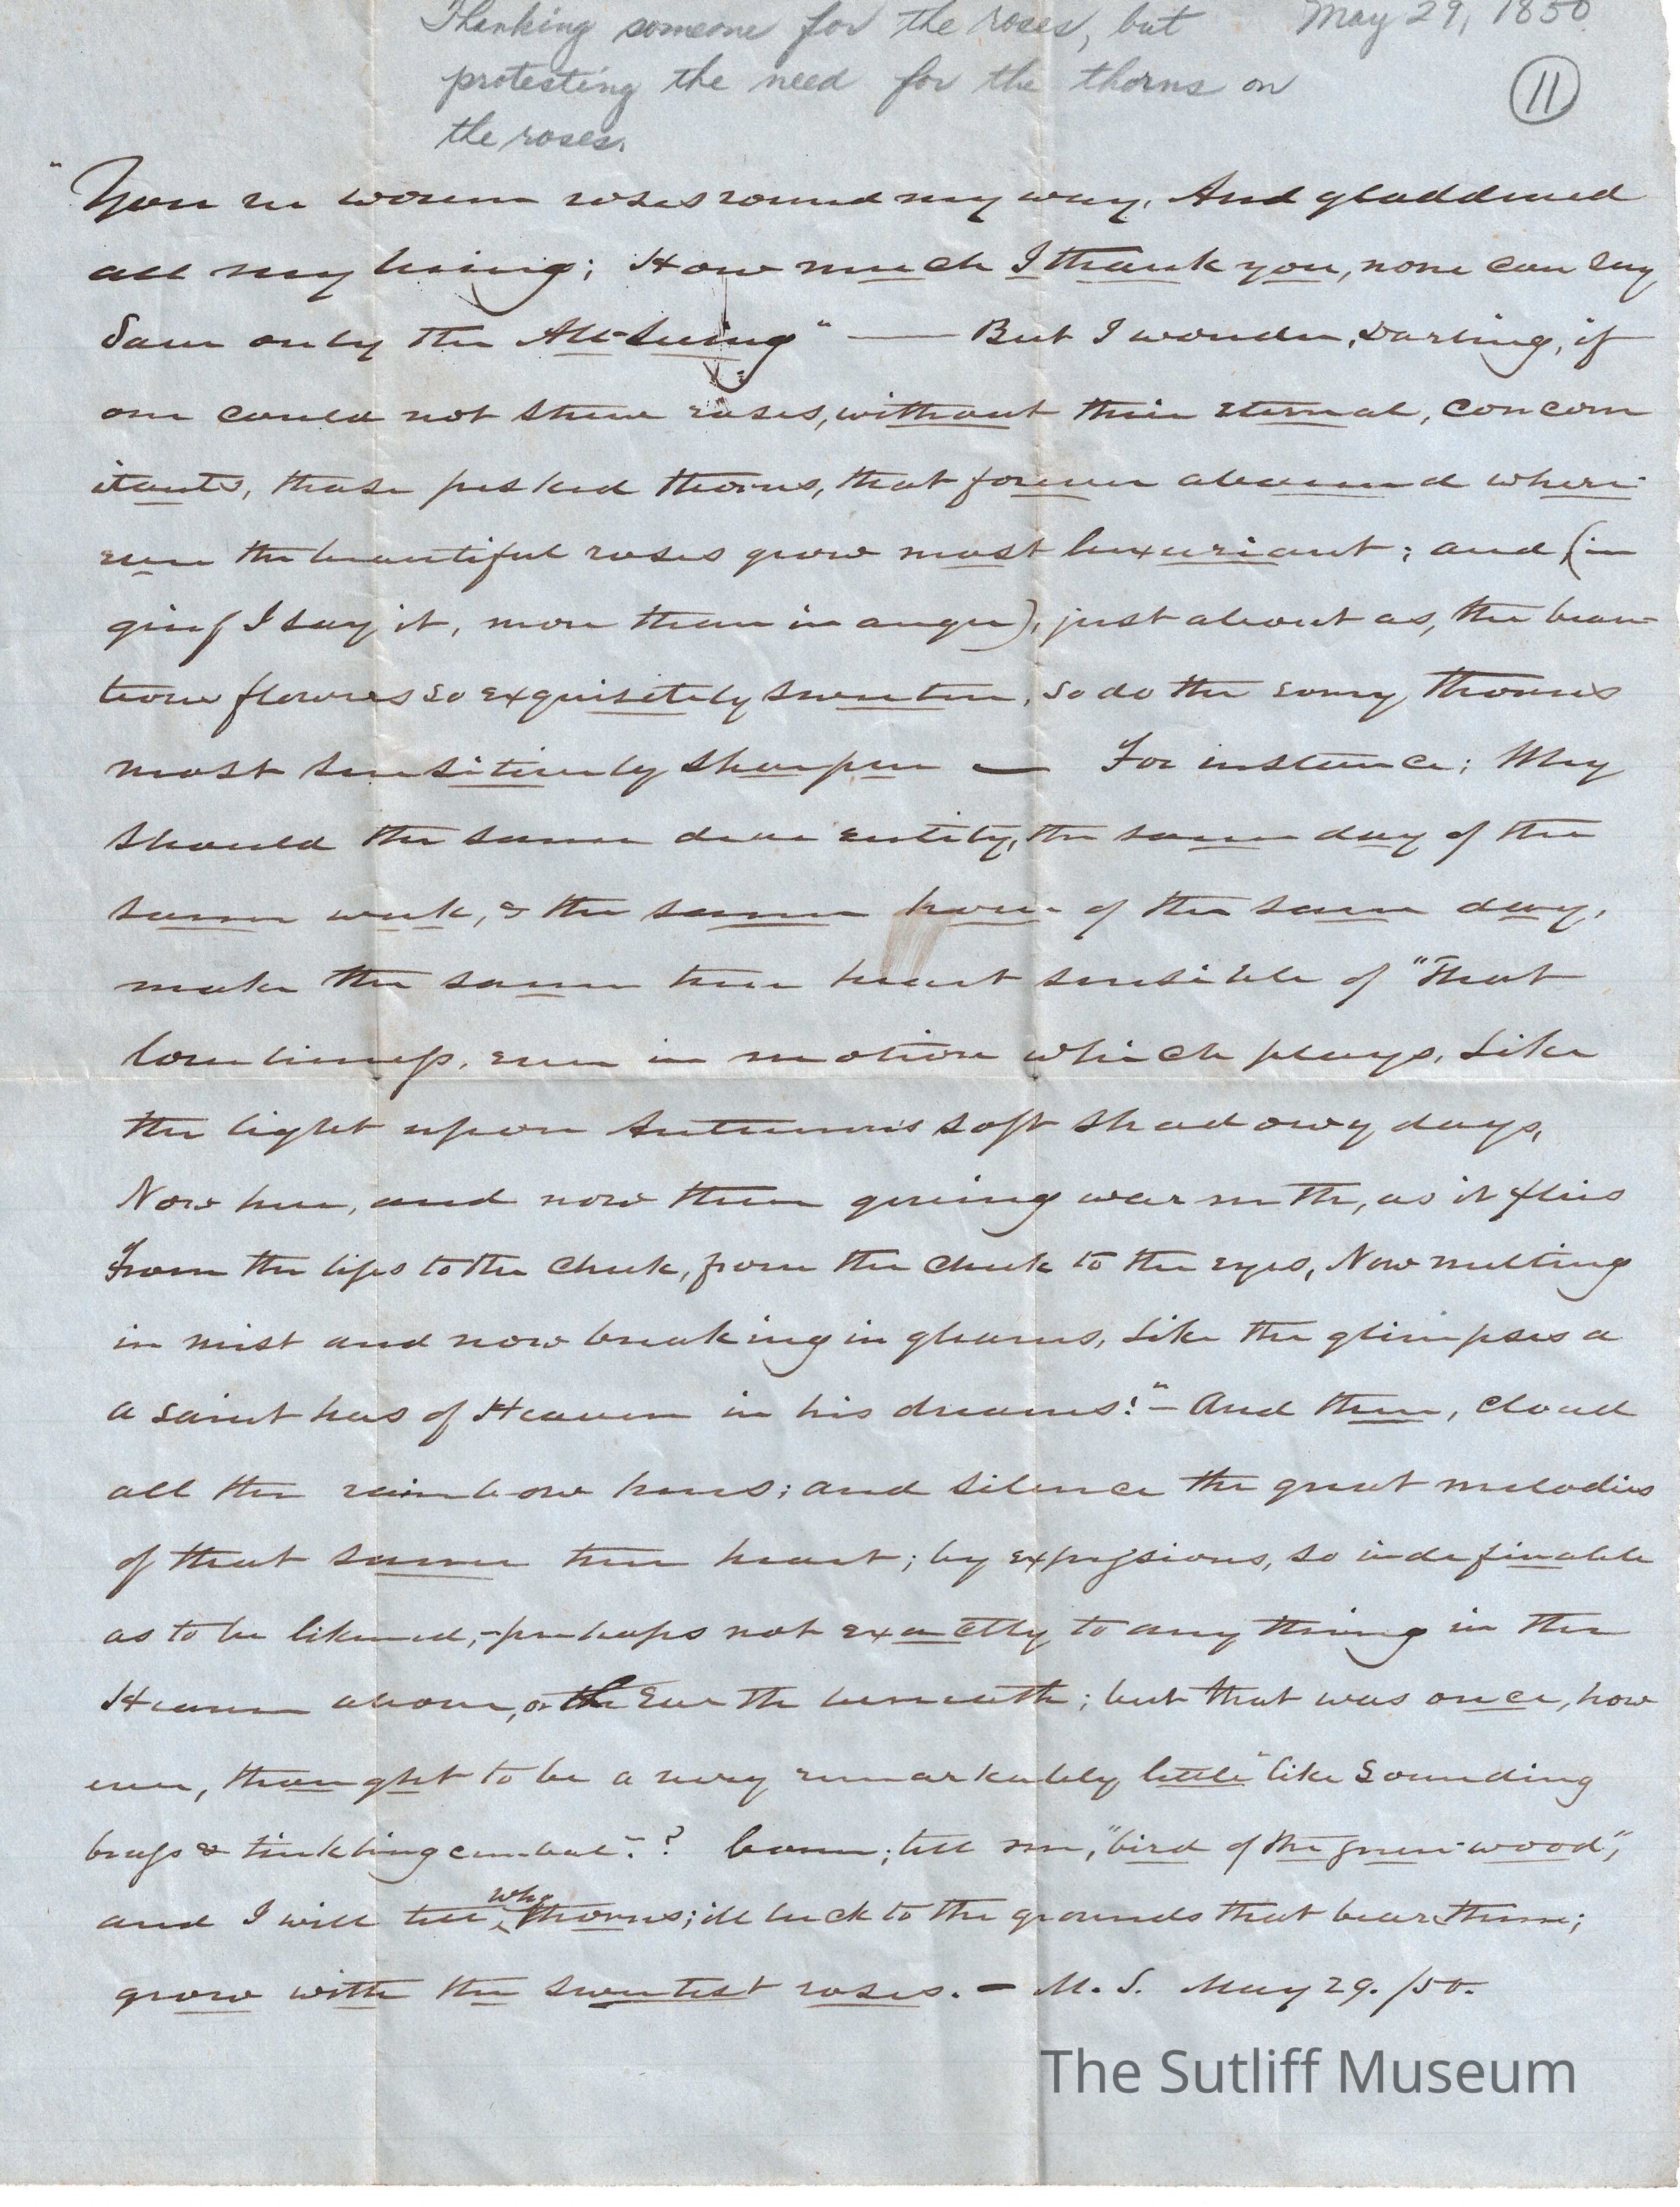 Thanking someone for the roses, but May 29, 1850
protesting the need for the thorns on
the roses.
11
"You've woven roses round my way, And gladdened
all my being; How much I thank you, none can say
Save only the All-Seeing" — But I wonder, Darling, if
one could not strew roses, without their eternal, concom
itants, those pesked thorns, that forever abound wher-
ever the beautiful roses grow most luxuriant; and (in
grief I say it, more than in anger), just about as, the beau-
teous flowres so exquisetely sweeten, so do the sorry thorns
most sensitively sharpen — For instance; Why
should the same dear entity, the same day of the
same week, & the same hour of the same day,
make the same true heart sensible of "That
loveliness, ever in motion which plays, Like
the light upon Autumn's soft shadowy days,
Now here, and now there giving warmth, as it flies
From the lips to the cheek, from the cheek to the eyes, Now melting
in mist and now breaking in gleams, Like the glimpses a
a saint has of Heaven in his dreams!" — And then, cloud
all the rainbow hues; and silence the great melodies
of that same true heart; by expressions, so indefinable
as to be likened, - perhaps not exactly to any thing in the
Heaven above, or the Earth beneath; but that was once, how
ever, thought to be a very remarkably little "like sounding
brass & tinkling cimbal"? Come; tell me, "bird of the green-wood",
and I will tell why thorns; ill luck to the grounds that bear them;
grow with the sweetest roses. — M. S. May 29. /50.
The Sutliff Museum